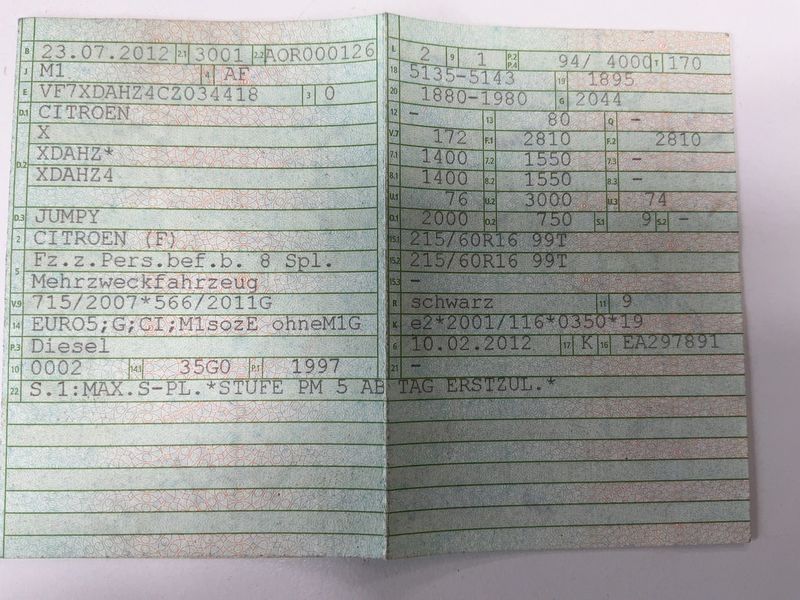 B 23.07.2012 2.1 3001 2.2 AOR000126
J M1 4 AF
E VF7XDAHZ4CZ034418 3 0
D.1 CITROEN
X
D.2 XDAHZ*
XDAHZ4
D.3 JUMPY
2 CITROEN (F)
5 Fz.z.Pers.bef.b. 8 Spl.
Mehrzweckfahrzeug
V.9 715/2007*566/2011G
14 EURO5;G;CI;M1sozE ohneM1G
P.3 Diesel
10 0002 14.1 35G0 P.1 1997
22 S.1:MAX.S-PL.*STUFE PM 5 AB TAG ERSTZUL.*
L 2 9 1 P.2 P.4 94/ 4000 T 170
18 5135-5143 19 1895
20 1880-1980 G 2044
12 - 13 80 Q -
V.7 172 F.1 2810 F.2 2810
7.1 1400 7.2 1550 7.3 -
8.1 1400 8.2 1550 8.3 -
U.1 76 U.2 3000 U.3 74
O.1 2000 O.2 750 S.1 9 S.2 -
15.1 215/60R16 99T
15.2 215/60R16 99T
15.3 -
R schwarz 11 9
K e2*2001/116*0350*19
6 10.02.2012 17 K 16 EA297891
21 -